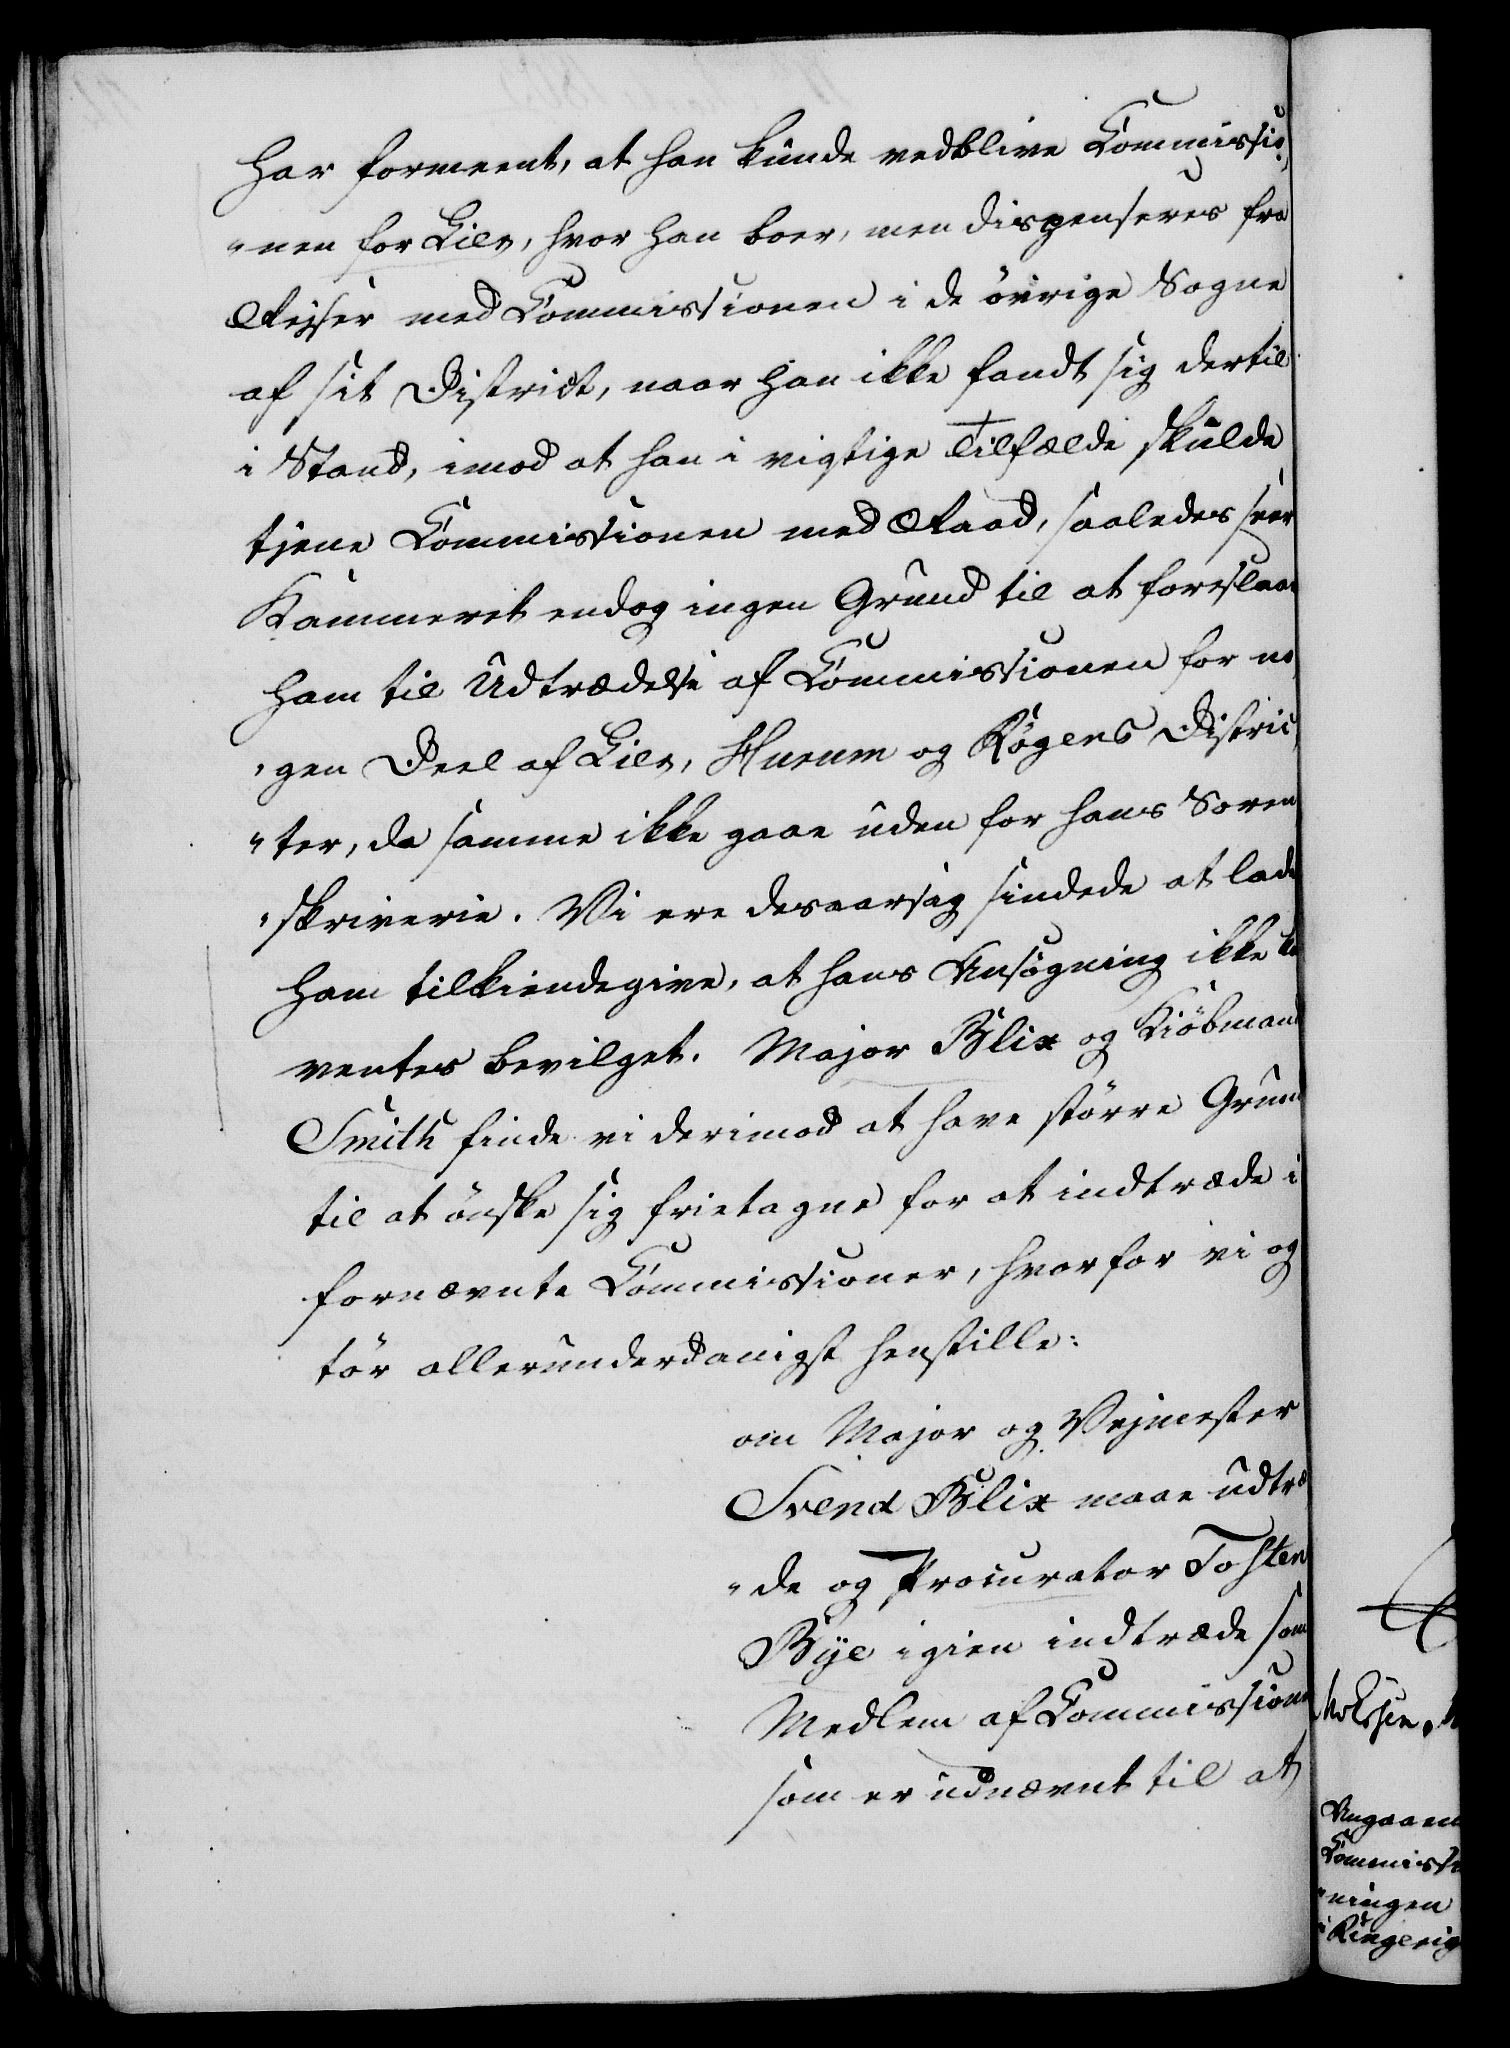 har formeent, at han kunde vedblive Commissio-
"nen for Lier, hvor han boer, men dispenseres fra
Reiser med Commissionen i de övrige Sogne
af sit District, naar han ikke fandt sig dertil
i Stand, imod at han i vigtige Tilfælde skulde
tjene Commissionen med Raad, saaledes seer
Kammeret endog ingen Grund til at foreslaae
ham til Udtrædelse af Commissionen for no-
"gen Deel af Lier, Hurum og Røgens Distric-
"ter, da samme ikke gaae uden for hans Soren-
"skriverie. Vi ere desaarsag sindede at lade
ham tilkiendegive, at hans Ansøgning ikke
ventes bevilget. Major Blix og Kiöbmand
Smith finde vi derimod at have större Grund
til at önske sig frietagne for at indtræde i
fornævnte Commissioner, hvorfor vi og
tör allerunderdanigst henstille:
om Major og Vejmester
Svend Blix maae udtræ-
"de og Procurator Tosten
Bye igien indtræde som
Medlem af Commissionen
som er udnævnt til at
Angaaen
Commissi
"ningen
Ringerig